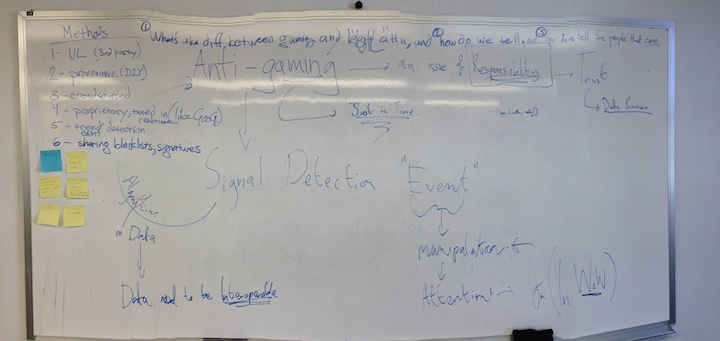 ① What's the diff. between gaming and legit attn, ② and how do we tell, ③ and how tell the people that care
Methods
1 - UL (3rd party)
2 - provenance (DIY)
3 - crowdsourced
4 - proprietary, tuned in (like Goog)
5 - trend detection
event
6 - sharing blacklists, signatures
Anti-gaming → an issue of Responsibility → Trust
Just in Time
Data
Signal Detection "Event"
Data
manipulation of
Data need to be Interoperable
Attention → (In WoW)